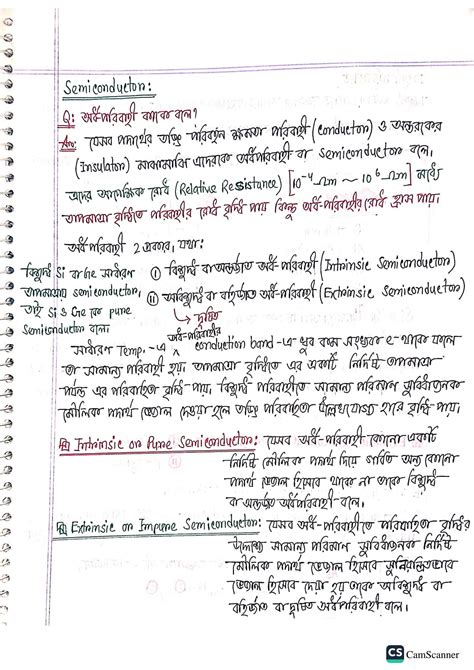 Semiconductor:
Q: অর্ধপরিবাহী কাকে বলে?
Ans: যেসব পদার্থের তড়িৎ পরিবহন ক্ষমতা পরিবাহী (conductor) ও অন্তরকের
(Insulator) মাঝামাঝি এদেরকে অর্ধপরিবাহী বা semiconductor বলে।
এদের আপেক্ষিক রোধ (Relative Resistance) [10⁻⁴ Ωm ~ 10⁶ Ωm] মধ্যে
তাপমাত্রা বৃদ্ধিতে পরিবাহীর রোধ বৃদ্ধি পায় কিন্তু অর্ধ-পরিবাহীর রোধ হ্রাস পায়।
অর্ধপরিবাহী 2 প্রকার, যথা:
বিশুদ্ধ Si বা Ge সাধারণ
তাপমাত্রায় semiconductor,
তাই Si ও Ge কে pure
semiconductor বলে।
(i) বিশুদ্ধ বা অন্তর্জাত অর্ধ-পরিবাহী (Intrinsic Semiconductor)
(ii) অবিশুদ্ধ বা বহির্জাত অর্ধ-পরিবাহী (Extrinsic Semiconductor)
→ দূষিত
সাধারণ Temp.-এ অর্ধ-পরিবাহীর conduction band-এ খুব কম সংখ্যক e⁻ থাকে বলে
তা সামান্য পরিবাহী হয়। তাপমাত্রা বৃদ্ধিতে এর একটি নির্দিষ্ট তাপমাত্রা
পর্যন্ত এর পরিবাহিতা বৃদ্ধি পায়। বিশুদ্ধ পরিবাহীতে সামান্য পরিমাণ সুবিধাজনক
মৌলিক পদার্থ ভেজাল দেওয়া হলে তড়িৎ পরিবাহিতা উল্লেখযোগ্য হারে বৃদ্ধি পায়।
Intrinsic or Pure Semiconductor: যেসব অর্ধ-পরিবাহী কোনো একটি
নির্দিষ্ট মৌলিক পদার্থ দিয়ে গঠিত অন্য কোনো
পদার্থ ভেজাল হিসেবে থাকে না তাকে বিশুদ্ধ
বা অন্তর্জাত অর্ধপরিবাহী বলে।
Extrinsic or Impure Semiconductor: যেসব অর্ধ-পরিবাহীতে পরিবাহিতা বৃদ্ধির
উদ্দেশ্যে সামান্য পরিমাণ সুবিধাজনক নির্দিষ্ট
মৌলিক পদার্থ ভেজাল হিসেবে সুনিয়ন্ত্রিতভাবে
ভেজাল হিসেবে দেয়া হয় তাকে অবিশুদ্ধ বা
বহির্জাত বা দূষিত অর্ধ-পরিবাহী বলে।
CS CamScanner